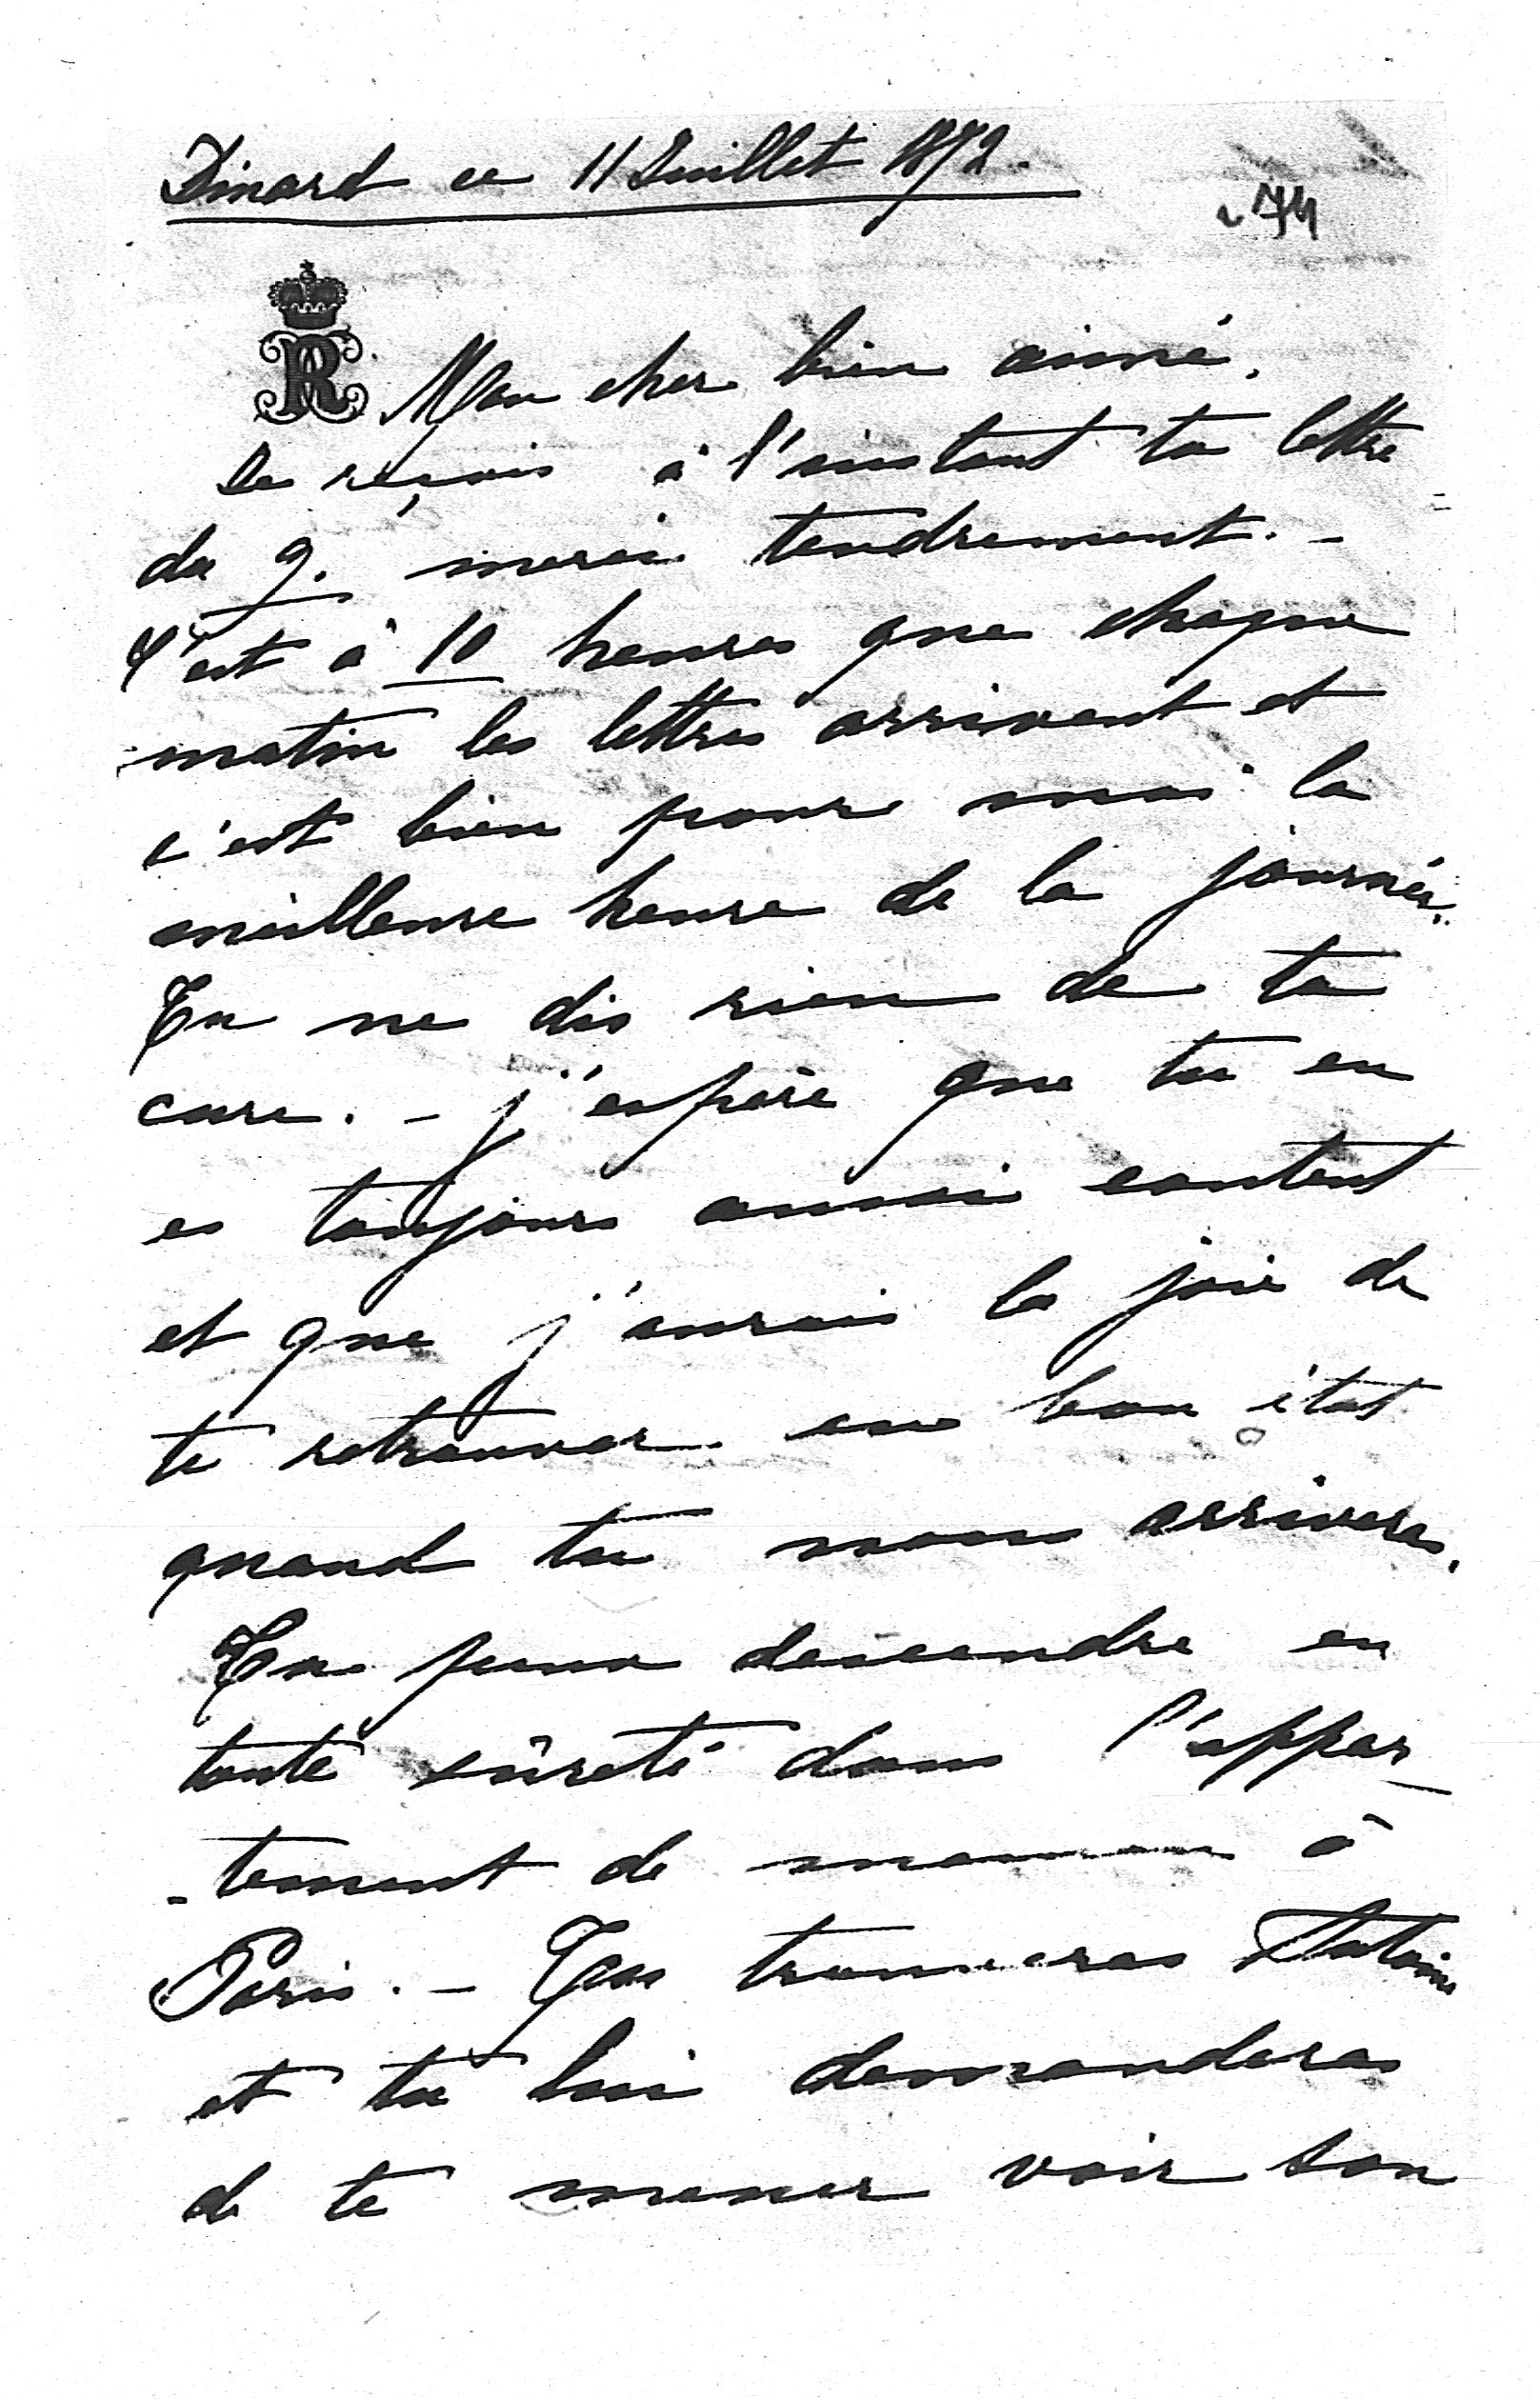 Dinard ce 11 Juillet 1872.
74
R
Mon cher bien aimé,
Je reçois à l'instant ta lettre
du 9. merci tendrement. -
C'est à 10 heures que chaque
matin les lettres arrivent et
c'est bien pour moi la
meilleure heure de la journée.
Tu ne dis rien de ta
cure. - j'espère que tu en
es toujours aussi content
et que j'aurais la joie de
te retrouver en bon état
quand tu nous arriveras.
Tu peux descendre en
toute sûreté dans l'appar-
-tement de maman à
Paris. - Tu trouveras Antoine
et tu lui demanderas
de te mener voir son